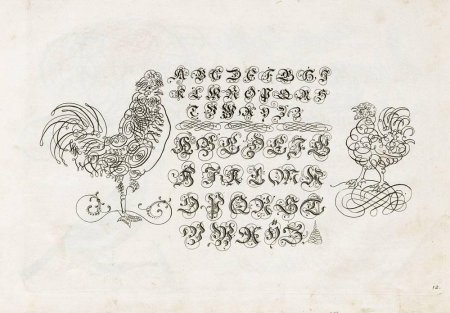 A B C D E F G H I
K L M N O P Q R S
T V W X Y Z
A B C D E F G
H I K L M N
O P Q R S T
V W X Y Z
12.